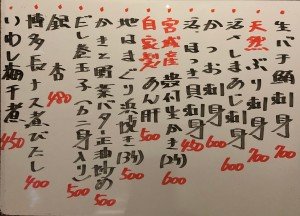 生バチ鮪刺身 700
天然ぶり刺身 700
活〆しまあじ刺身 600
活ほっき貝刺身 450
かつお刺身 600
宮城産殻付生かき(2ヶ) 600
自家製あん肝 500
地はまぐり浜焼き(3ヶ) 500
かきと野菜バター正油炒め 500
だし玉子(カニ身入り) 500
銀杏 480
博多長ナス煮びたし 400
いわし梅干煮 450